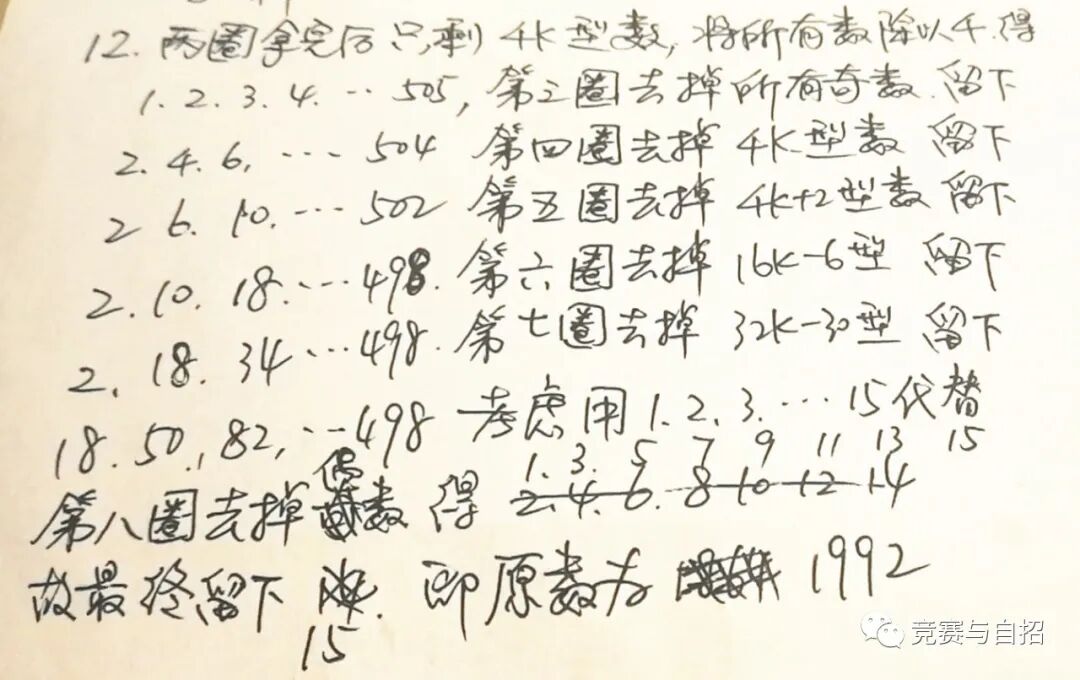 12. 两圈拿完后只剩 4k 型数, 将所有数除以 4. 得
1. 2. 3. 4. … 505, 第三圈去掉所有奇数. 留下
2. 4. 6. … 504 第四圈去掉 4k 型数 留下
2 6. 10. … 502 第五圈去掉 4k+2型数 留下
2. 10. 18. … 498. 第六圈去掉 16k-6型 留下
2. 18. 34 … 498. 第七圈去掉 32k-30型 留下
18. 50. 82, … 498 考虑用 1. 2. 3. … 15代替
第八圈去掉偶数 得 1. 3. 5 7 9 11 13 15
2. 4. 6. 8 10 12 14
故最终留下 15. 即原数为 1992
竞赛与自招